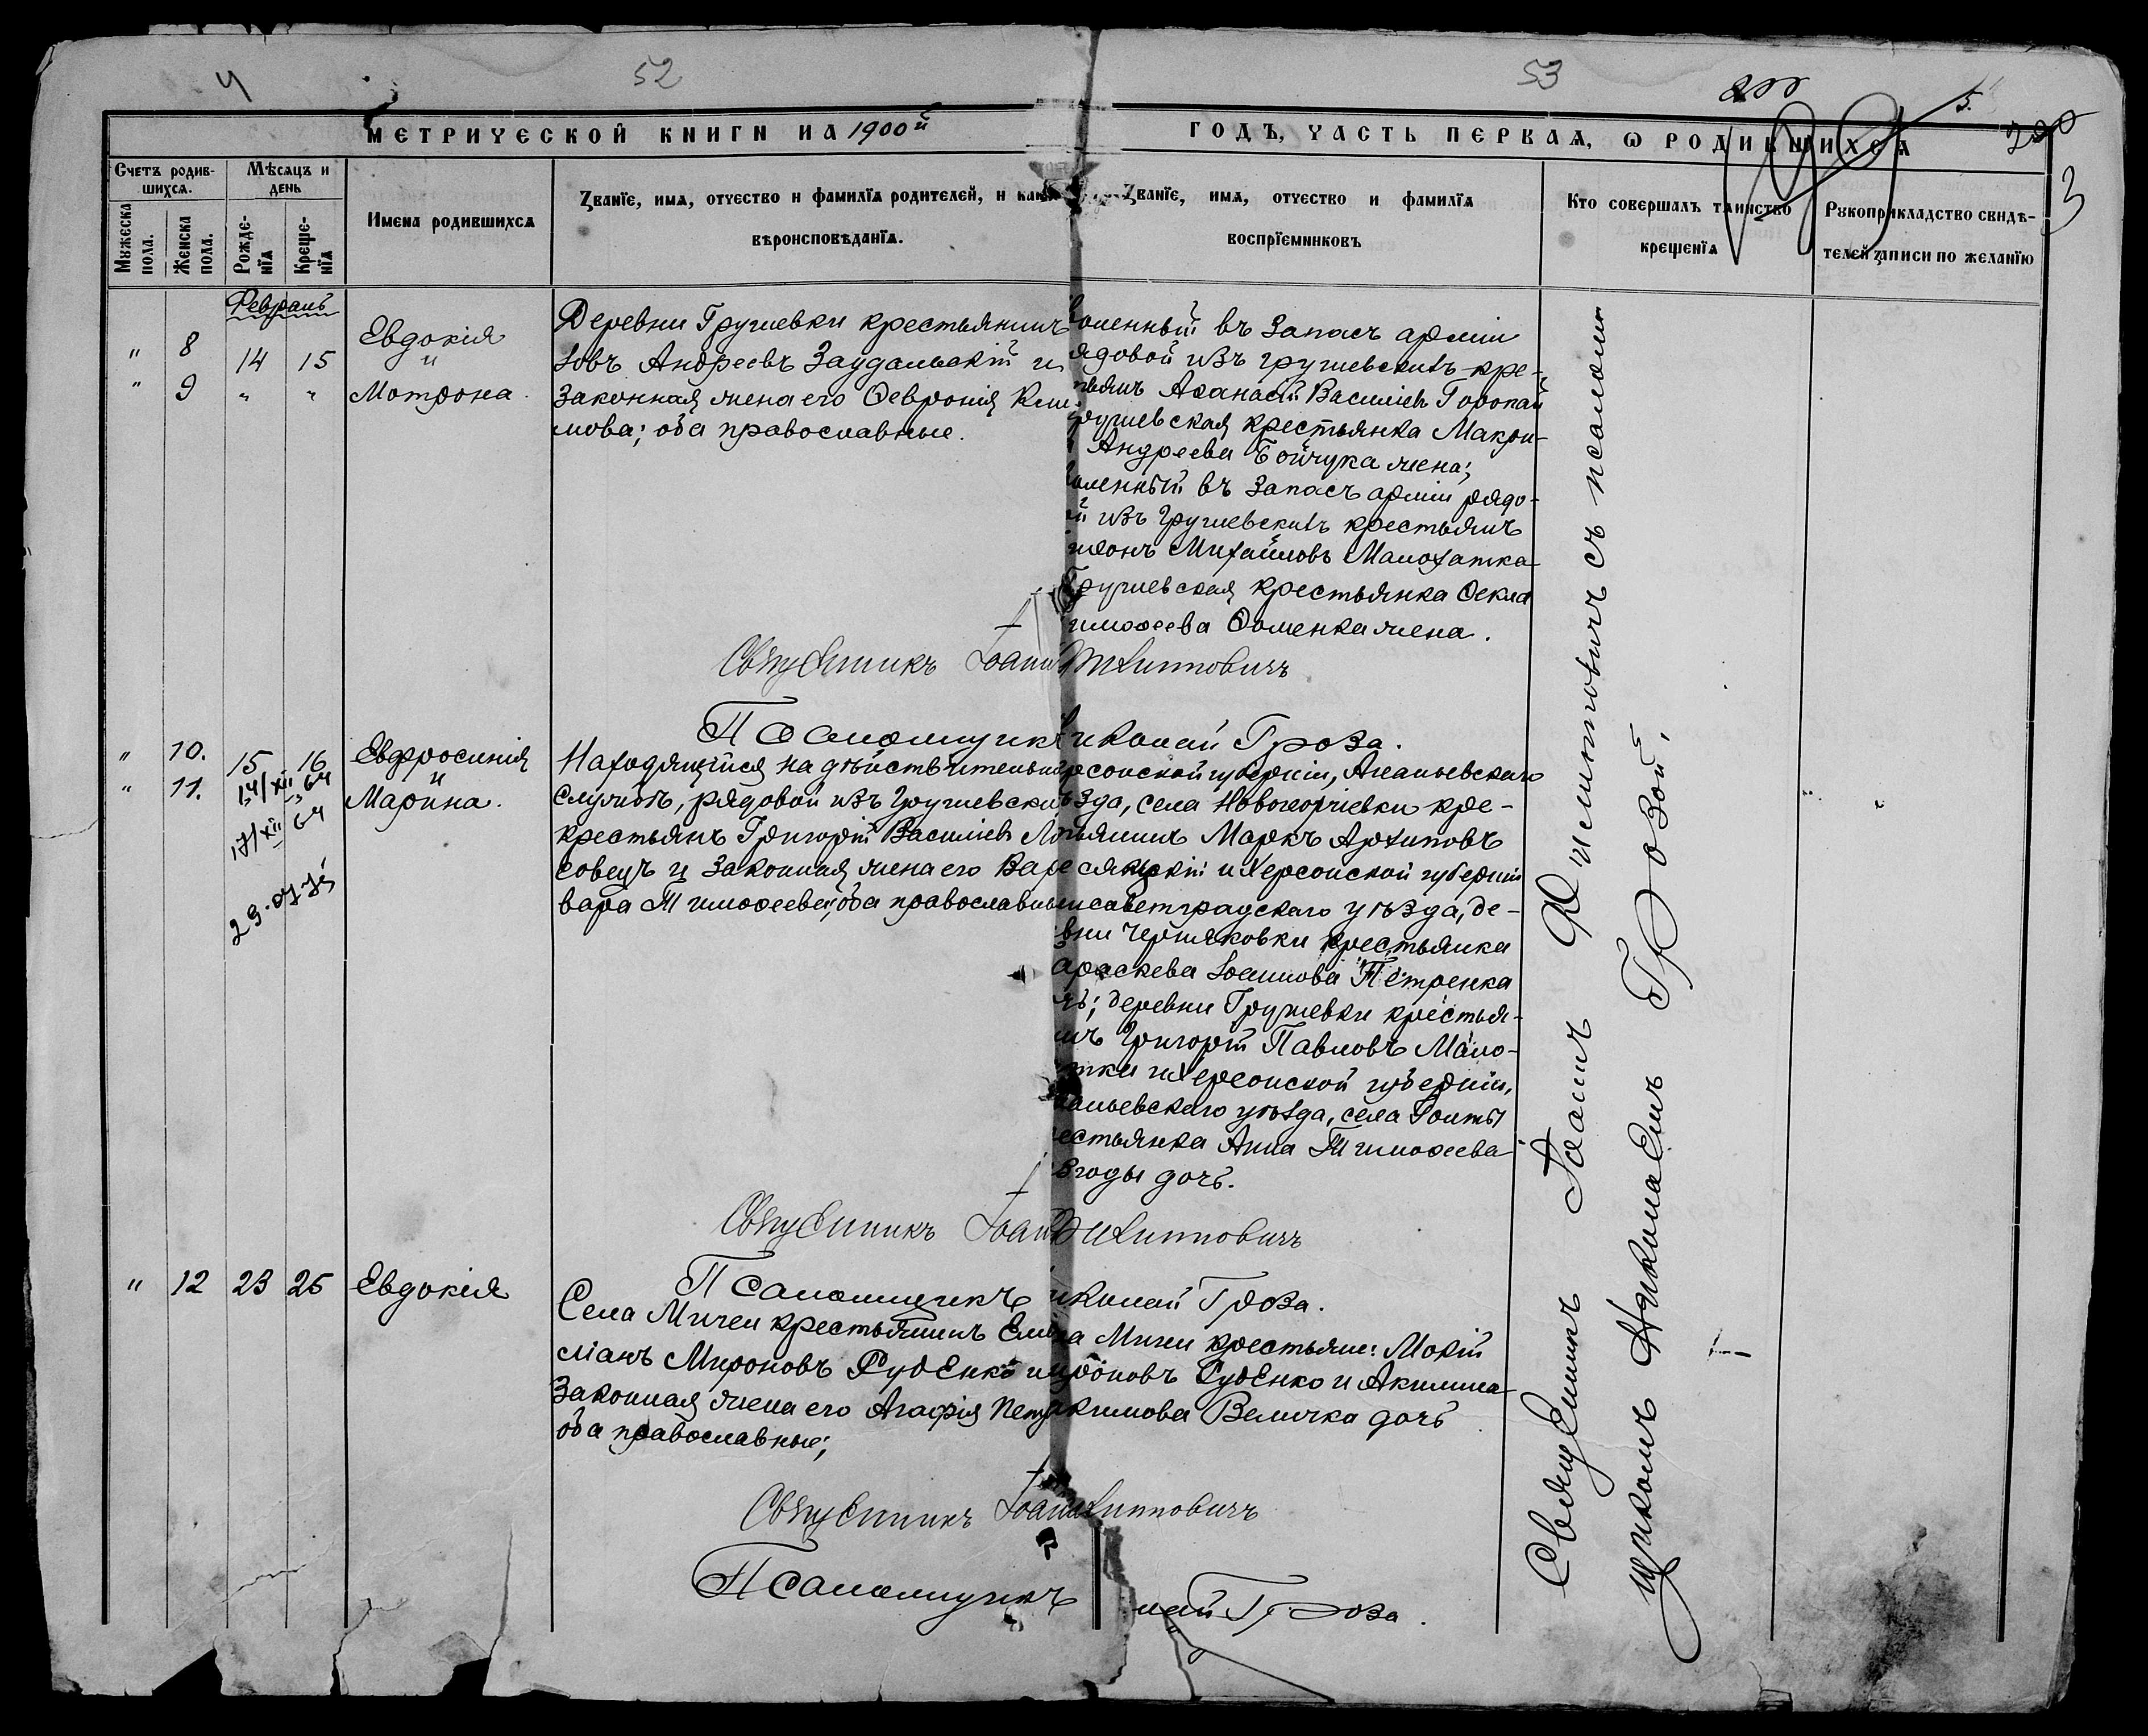 4
52
53
5.
3
МЕТРИЧЕСКОЙ КНИГИ НА 1900й
ГОДЪ, ЧАСТЬ ПЕРВАЯ, Ѡ РОДИВШИХСЯ
Счетъ родив-
шихся.
Мужеска
пола.
Женска
пола.
Мѣсяцъ и
день
Рожде-
нїя
Креще-
нїя
Имена родившихся
Званїе, имя, отчество и фамилїя родителей, и
вѣроисповѣданїя.
Званїе, имя, отчество и фамилїя
воспрїемниковъ
Кто совершалъ таинство
крещенїя
Рукоприкладство свидѣ-
телей записи по желанїю
Февраль
" 8 14 15 Евдокія
и
" 9 " " Мотрона.
Деревни Грушевки крестьянинъ
Іовъ Андреевъ Заудальскій и
законная жена его Ѳевронія Кли-
мова; оба православные.
воленный въ запасъ арміи
рядовой изъ грушевскихъ кре-
стьянъ Аѳанасій Васильевъ Горопай
грушевская крестьянка Макри-
Андреева Бойчука жена;
воленный въ запасъ арміи рядо-
ой изъ грушевскихъ крестьянъ
Михаиловъ Малохатка
Грушевская крестьянка Ѳекла
имоѳеева Ѳоменка жена.
Священникъ Іоаннъ Филиповичъ
Псаломщикъ Николай Гроза.
" 10. 15 16 Евфросинія
и
" 11. " " Марина.
14/XII 64
17/XII 64
Находящійся на дѣйствительной
службѣ, рядовой изъ грушевскихъ
крестьянъ Григорій Васильевъ
совецъ и законная жена его Вар-
вара Тимоѳеева; оба православные
рсонской губерніи, Ананьевскаго
ѣзда, села Новогеоргіевки кре-
тьянинъ Маркъ Архиповъ
и Херсонской губерніи
исаветградскаго уѣзда, де-
вни Черняковки крестьянка
араскева Іоаннова Петренка
чь; деревни Грушевки крестья-
инъ Григорій Павловъ Мало-
тки и Херсонской губерніи,
аньевскаго уѣзда, села Голты
естьянка Анна Тимоѳеева
годы дочь.
Священникъ Іоаннъ Филиповичъ
Псаломщикъ Николай Гроза.
" 12 23 25 Евдокія
Села Мигеи крестьянинъ Еми-
ліанъ Мироновъ Руденко и
законная жена его Агафія Петр
оба православные;
ла Мигеи крестьяне: Мокій
ироновъ Руденко и Акилина
Акимова Величка дочь
Священникъ Іоаннъ Филиповичъ
Псаломщикъ
лай Гроза.
Священникъ Іоаннъ Филиповичъ съ псалом-
щикомъ Николаемъ Грозой.